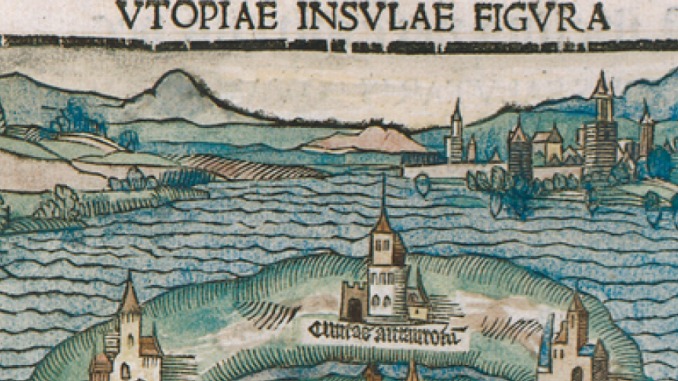 VTOPIAE INSVLAE FIGVRA
Ciuitas amaurotū